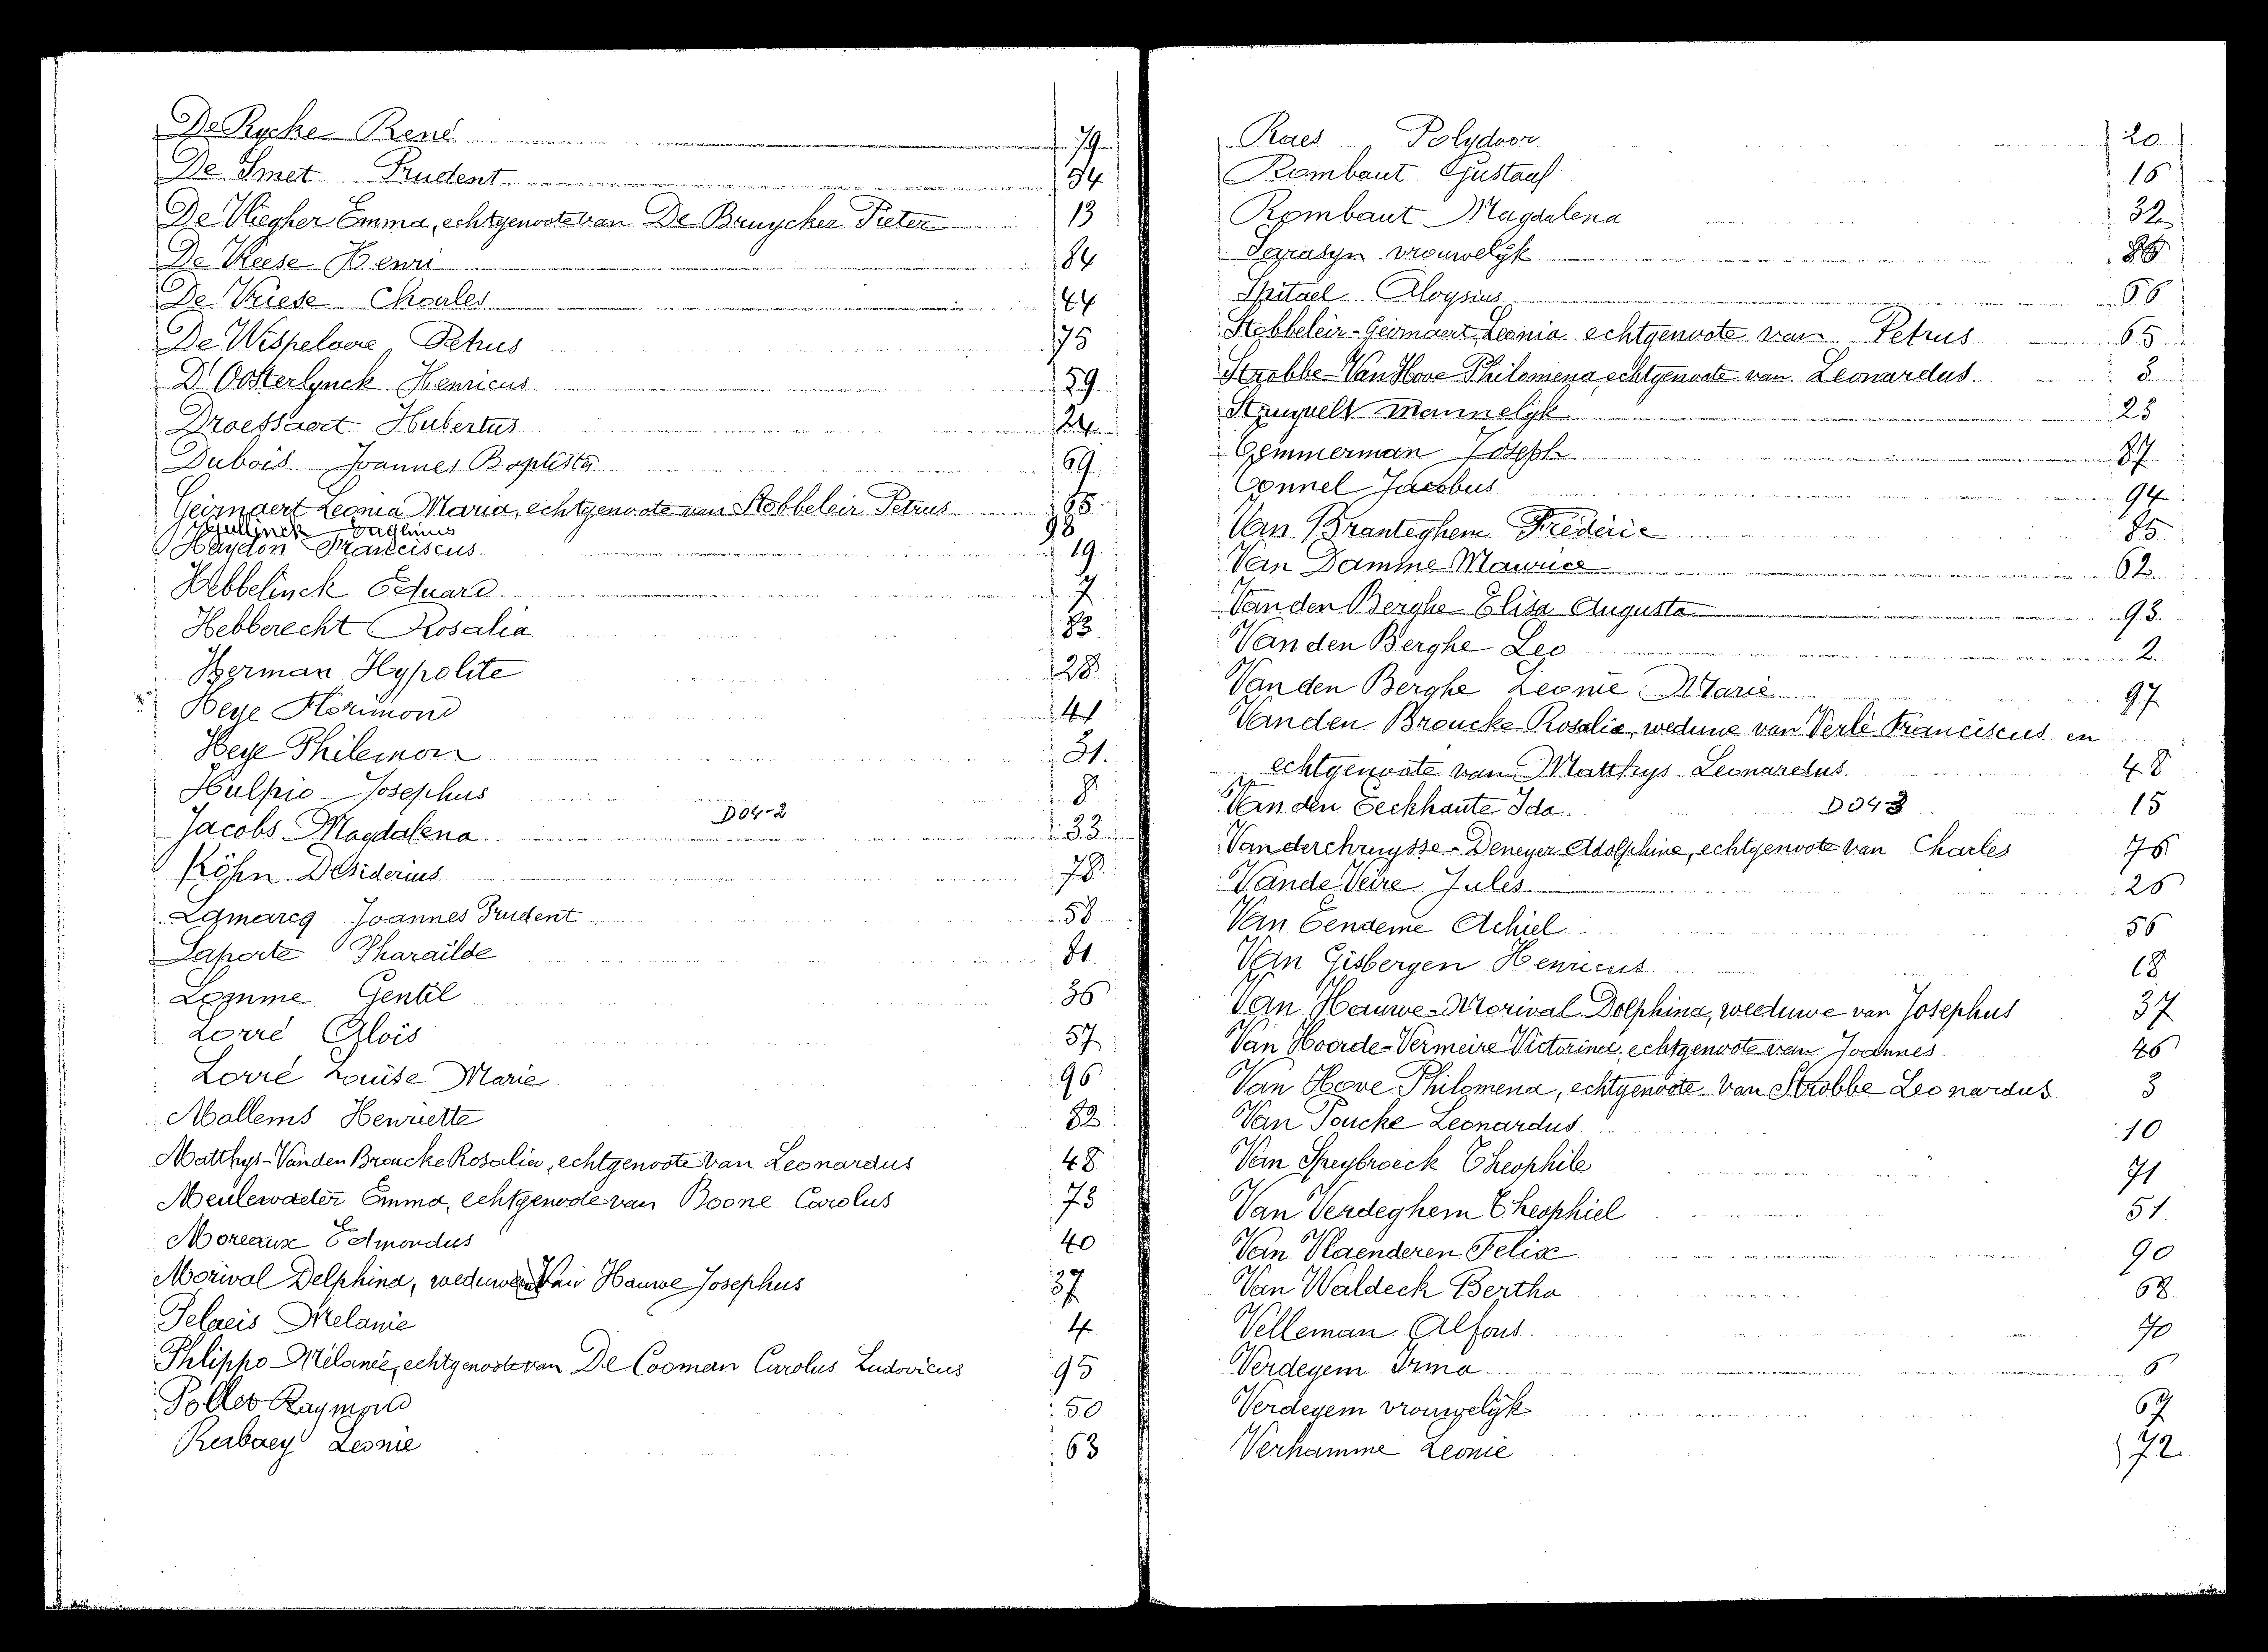 De Rycke René 79
De Smet Prudent 34
De Vliegher Emma, echtgenoote van De Bruycker Pieter 13
De Vriese Henri 84
De Vriese Charles 44
De Wispelaere Petrus 75
D'Oosterlynck Henricus 59
Droessaert Hubertus 24
Dubois Joannes Baptista 69
Geirnaert Leonia Maria, echtgenoote van Stobbeleir Petrus 65
98
Haydon Franciscus 19
Hebbelinck Eduard 7
Hebberecht Rosalia 83
Herman Hypolite 28
Heye Florimond 41
Heye Philemon 31.
Hulpio Josephus 8
D04-2
Jacobs Magdalena 33
Köhn Desiderius 78
Lamarcq Joannes Prudent 58
Laporte Pharaïlde 81
Lomme Gentil 36
Lorré Aloïs 57
Lorré Louise Marie 96
Mallems Henriette 82
Matthys-Vanden Broucke Rosalia, echtgenoote van Leonardus 48
Meulewaeter Emma, echtgenoote van Boone Carolus 73
Moreaux Edmondus 40
Morival Delphina, weduwe van Van Hauwe Josephus 37
Pelaeis Melanie 4
Phlippo Mélanie, echtgenoote van De Cooman Carolus Ludovicus 95
Pollet Raymond 50
Rerbaey Leonie 63
Raes Polydoor 20
Rombaut Gustaaf 16
Rombaut Magdalena 32
vrouwelyk 86
Spitael Aloysius 66
Stobbeleir-Geirnaert Leonia echtgenoote van Petrus 65
Strobbe-Van Hove Philomena echtgenoote van Leonardus 3
mannelyk 23
Temmerman Joseph 87
Tonnel Jacobus 94
Van Branteghem Fréderic 85
Van Damme Maurice 62
Vanden Berghe Elisa Augusta 93
Vanden Berghe Leo 2
Vanden Berghe Leonie Marie 97
Vanden Broucke Rosalia, weduwe van Verlé Franciscus en
echtgenoote van Matthys Leonardus 48
Vanden Eeckhaute Ida. D04-3 15
Vanderchruysse-Deneyer Adolphine, echtgenoote van Charles 76
Vande Veire Jules 26
Van Eenaeme Achiel 56
Van Gisbergen Henricus 18
Van Hauwe-Morival Dolphina, weduwe van Josephus 37
Van Hoorde-Vermeire Victorina, echtgenoote van Joannes 46
Van Hove Philomena, echtgenoote van Strobbe Leonardus 3
Van Poucke Leonardus. 10
Van Speybroeck Theophile 71
Van Verdeghem Theophiel 51.
Van Vlaenderen Felix 90
Van Waldeck Bertha 68
Velleman Alfons. 70
Verdegem Irma 6
Verdegem vrouwelyk 67
Verhamme Leonie 72